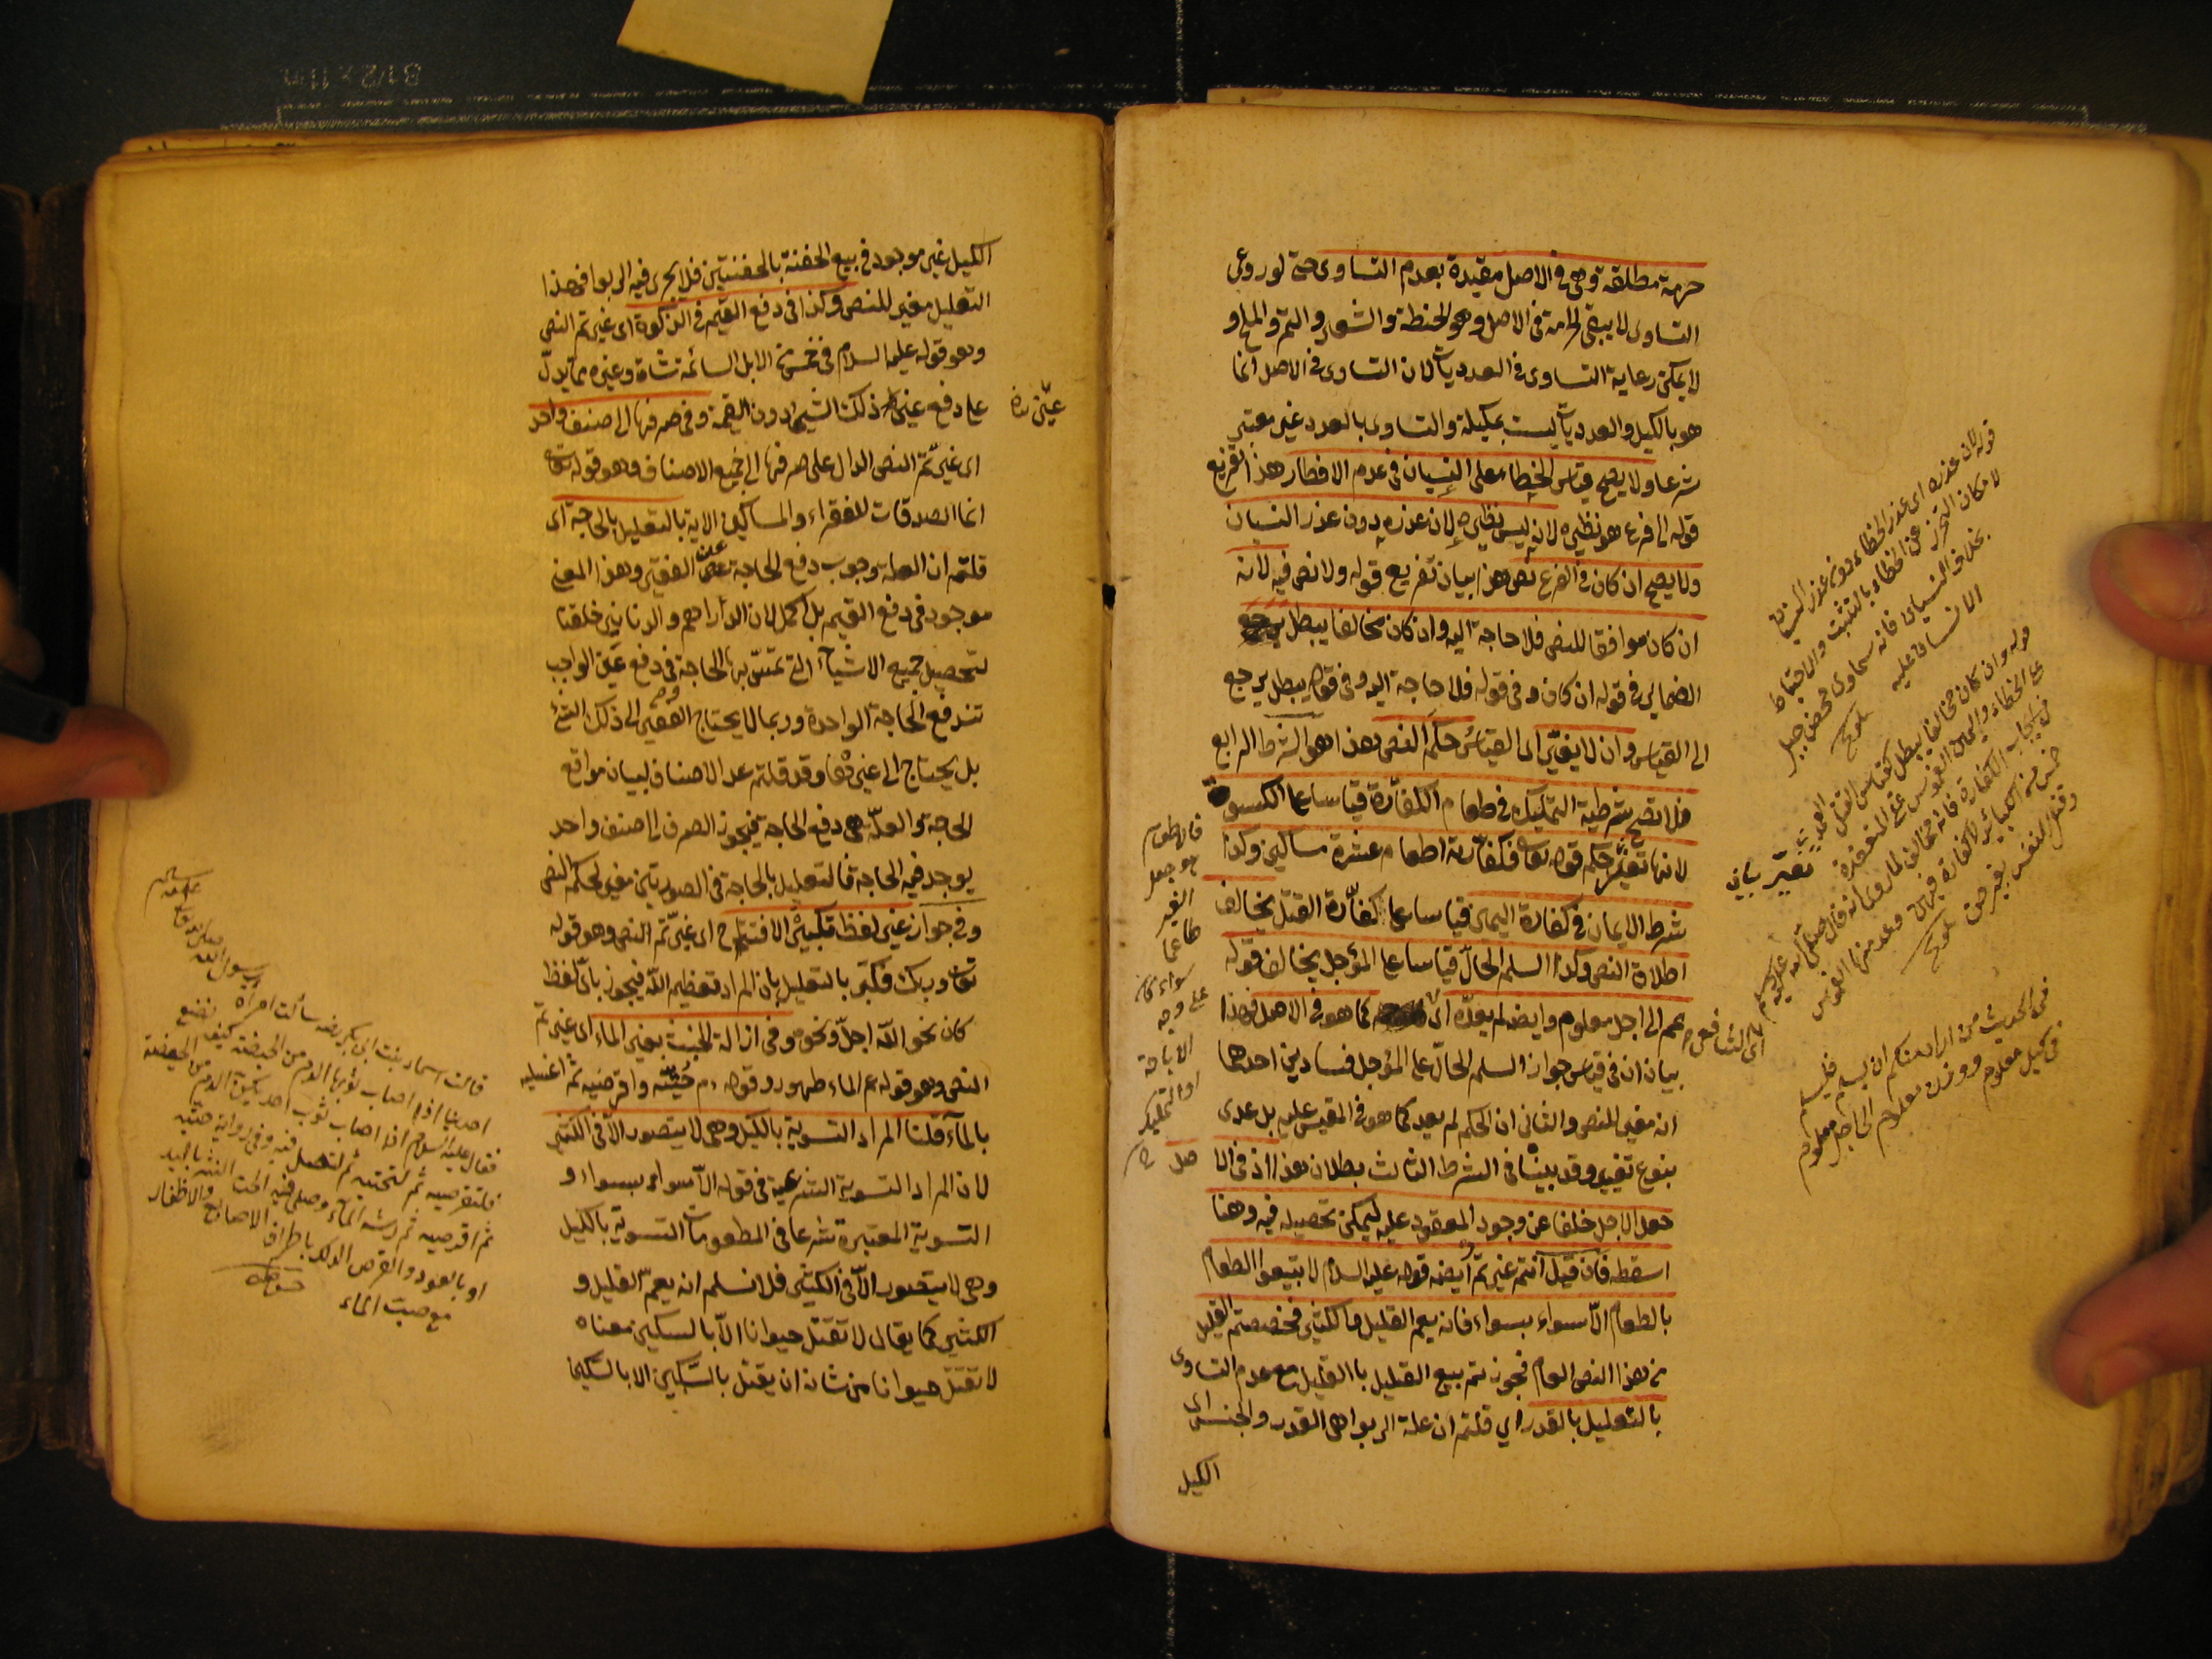 حرمة مطلقة وهي في الاصل مقيدة بعدم التساوى حتى لو روعى
التساوى لا يبقى الحرمة في الاصل وهو الحنطة والشعير والتمر والملح و
لا يمكن رعاية التساوى في العدديات لان التساوى في الاصل انما
هو بالكيل والعدديات ليست بمكيلة والتساوى بالعدد غير معتبر
شرعا ولا يصح قياس الخطاء على النسيان في عدم الافطار هذا تفريع
قوله الى فرع هو نظيره لانه ليس نظيره لان عذره دون عذر النسيان
ولا يصح ان كان في الفرع نص هذا بيان تفريع قوله ولا نص فيه لانه
ان كان موافقا للنص فلا حاجة اليه وان كان مخالفا يبطل
الضماير في قوله ان كان وفي قوله فلا حاجة اليه وفي قوله يبطل يرجع
الى القياس وان لا يغيّر اى القياسُ حكمَ النص هذا هو الشرط الرابع
فلا تصح شرطية التمليك في طعام الكفّارة قياسا على الكسوة
لانها تغيّر حكم قوله تعالى فكفّارته اطعام عشرة مساكين وكذا
شرط الايمان في كفارة اليمين قياسا على كفّارة القتل يخالف
اطلاق النص وكذا السلم الحالّ قياسا على المؤجل يخالف قوله
عم الى اجل معلوم وايضا لم يعدّه اى كما هو في الاصل فهذا
بيان ان في قياس جواز السلم الحالّ على المؤجل فسادين احدهما
انه مغير للنص والثاني ان الحكم لم يعد كما هو في المقيس عليه بل عدى
بنوع تغيير وقد بينّا في الشرط الثالث بطلان هذا اذ في الا صل
جعل الاجل خلفا عن وجود المعقود عليه ليمكن تحصيله فيه وهنا
اسقطه فان قيل انتم غيرتم ايضا قوله عليه السلام لا تبيعوا الطعام
بالطعام الّا سواء بسواء فانه يعم القليل والكثير فخصصتم القليل
من هذا النص العام فجوزتم بيع القليل باالقليل مع عدم التساوى
بالتعليل بالقدر اي قلتم ان علة الربوا هي القدر والجنس اى
الكيل
قوله لان عذره اى عذر الخطاء دون عذر النسيان
لامكان التحرز عن الخطاء بالتثبت والاحتياط
بخلاف النسيان فانه سماوى محض جبل
الانسان عليه
تلويح
قوله وان كان مخالفا يبطل كقياس القتل العمد
على الخطاء واليمين الغموس على المنعقدة
في ايجاب الكفارة فانه مخالف لما روى انه قال صلى الله عليه وسلم
خمس من الكبائر لا كفارة فيهن وعد منها الغموس
وقتل النفس بغير حق
تلويح
تغيير بيان
اى الشافعى رح
في الحديث من اراد منكم ان يسلم فليسلم
في كيل معلوم ووزن معلوم الى اجل معلوم
فالاطعام
هو جعل
الغير
طاعما
سواء كان
على وجه
الاباحة
او التمليك
الكيل غير موجود في بيع الحفنة بالحفنتين فلا يجرى فيه الربوا فهذا
التعليل مغير للنص وكذا في دفع القيم في الزكوة اى غيرتم النص
وهو قوله عليه السلام في خمس من الابل السائمة شاة وغيره مما يدلّ
على دفع عين ذلك الشيء دون القيمة وفي صرفها الى صنف واحد
عين
اى غيّرتم النص الدال على صرفها الى جميع الاصناف وهو قوله تعالى
انما الصدقات للفقراء والمساكين الاية بالتعليل بالحاجة اى
قلتم ان العلة وجوب دفع الحاجة عن الفقير وهذا المعنى
موجود في دفع القيم بل اكمل لان الدراهم والدنانير خلقتا
لتحصيل جميع الاشياء التي تمسّ بها الحاجة وفي دفع عين الواجب
تندفع الحاجة الواحدة وربما لا يحتاج الفقير الى ذلك الشئ
بل يحتاج الى غيره وقد قلتم عد الاصناف لبيان مواقع
الحاجة والعلّة هي دفع الحاجة فيجوز الصرف الى صنف واحد
يوجد فيه الحاجة فالتعليل بالحاجة في الصورتين مغير لحكم النص
وفي جواز غير لفظ تكبير الافتتاح اى غيّرتم النص وهو قوله
تعالى وربك فكبّر بالتعليل بان المراد تعظيم الله فيجوز باىّ لفظ
كان نحو الله اجلّ ونحوه وفي ازالة الخبث بغير الماء اى غيرتم
النص وهو قوله عم الماء طهور وقوله عم حُتّيه واقرصيه ثم اغسليه
بالماء قلنا المراد التسوية بالكيل وهي لا يتصور الّا في الكثير
لان المراد التسوية الشرعية في قوله الّا سواء بسواء و
التسوية المعتبرة شرعا في المطعومات التسوية بالكيل
وهي لا يتصور الّا في الكثير فلا نسلم انه يعمّ القليل و
الكثير كما يقال لا تقتل حيوانا الّا بالسكين معناه
لا تقتل حيوانا من شانه ان يقتل بالسكين الا بالسكين
قالت اسماء بنت ابى بكر رضه سألت امرأة رسول الله صلى الله عليه وسلم
احدينا اذا اصاب ثوبها الدم من الحيضة كيف تصنع
فقال عليه السلام اذا اصاب ثوب احديكن الدم من الحيضة
فلتقرصيه ثم لتصل فيه وفي رواية حتيه
ثم اقرصيه ثم رشيه بالماء وصلى فيه الحت القشر باليد
او بالعود والقرص الدلك باطراف الاصابع والاظفار
مع صب الماء